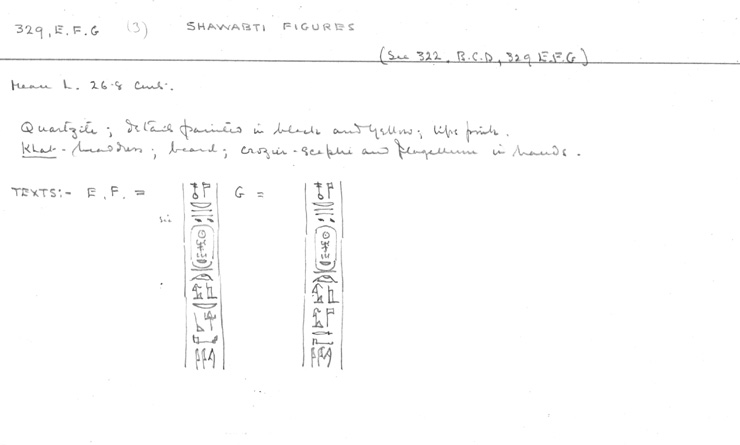 329, E.F.G (3) SHAWABTI FIGURES
(See 322, B.C.D, 329 E.F.G)
Mean L. 26.8 cms.
Quartzite; details painted in black and yellow; lips pink.
Khat-headdress; beard; crozier-sceptre and flagellum in hands.
TEXTS:- E.F. = G =
sic